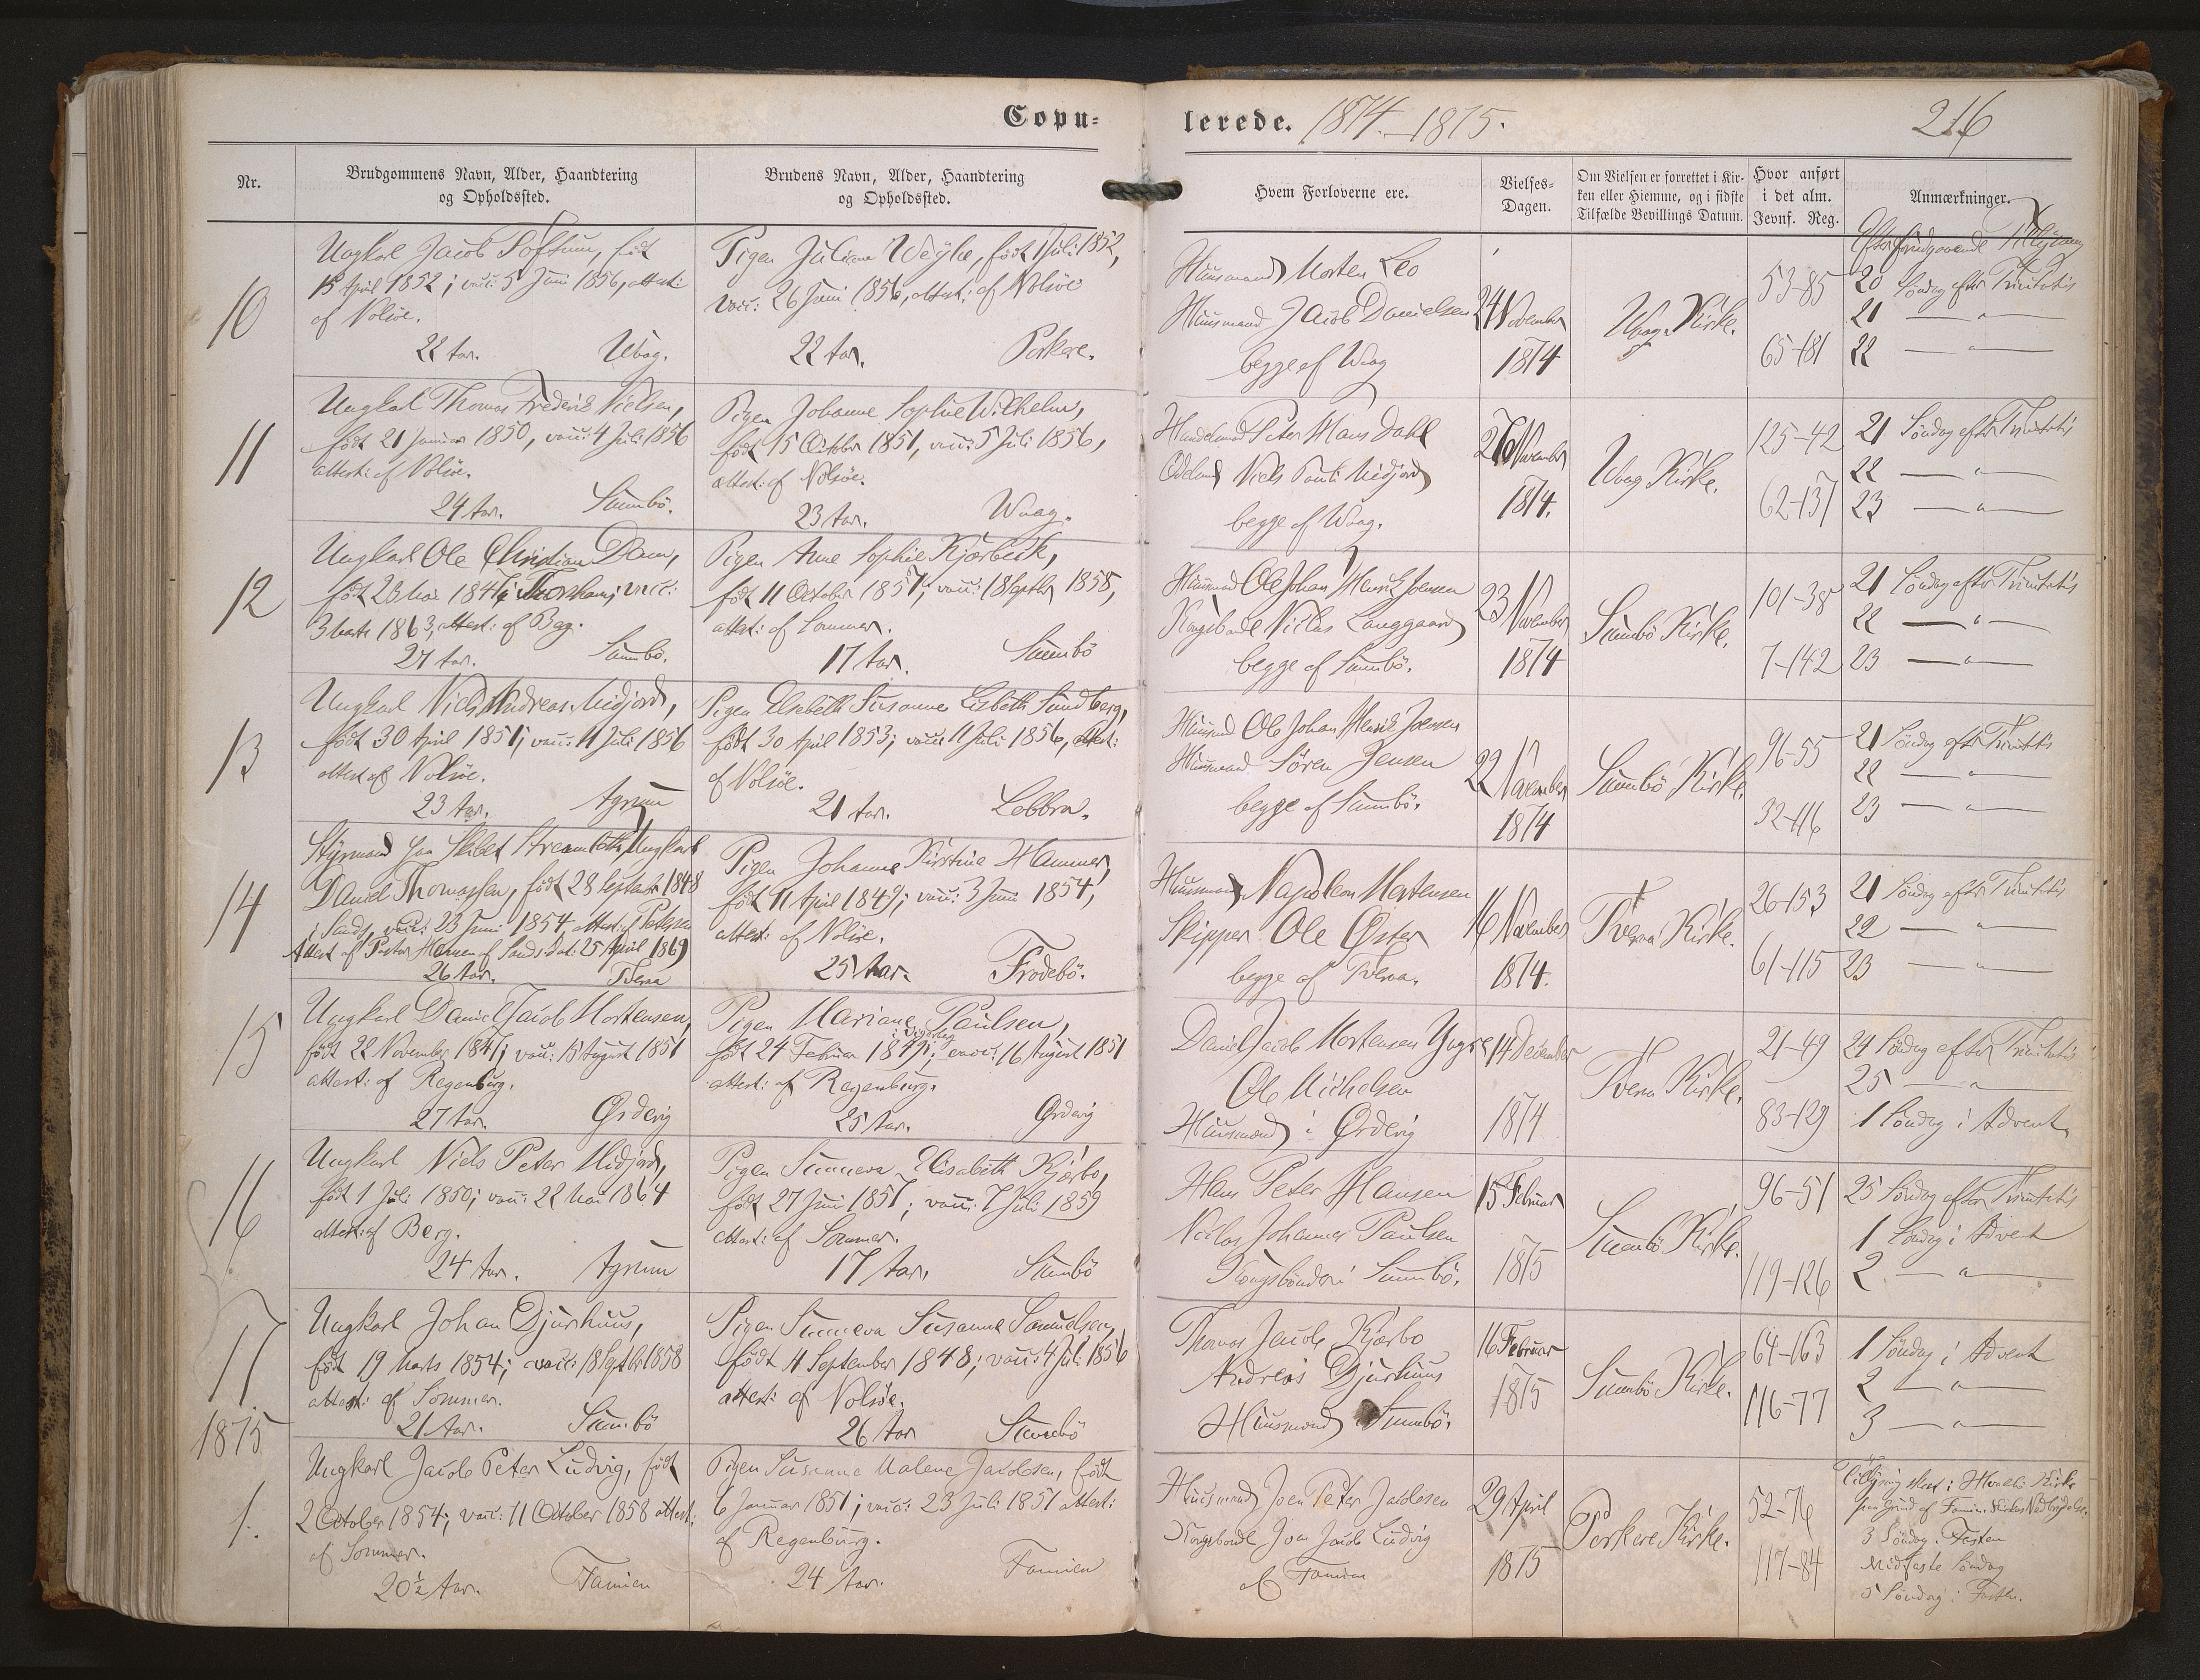 Copu=
lerede. 1874.-1875.
216
Nr.
Brudgommens Navn, Alder, Haandtering
og Opholdssted.
Brudens Navn, Alder, Haandtering
og Opholdssted.
Hvem Forloverne ere.
Vielses-
Dagen.
Om Vielsen er forrettet i Kir-
ken eller Hiemme, og i sidste
Tilfælde Bevillings Datum.
Hvor anført
i det alm.
Jevnf. Reg.
Anmærkninger.
10
Ungkarl Jacob Poftum, født
15 April 1852; vacc: 5 Juni 1856, attest:
af Nolsøe.
22 Aar. Waag.
Pigen Juliane Weyhe, født Juli 1852,
vacc: 26 Juni 1856, attest: af Nolsøe
22 Aar. Porkere.
Huusmand Morten Leo
Huusmand Jacob Danielsen
begge af Waag
24 November
1874
Waag Kirke.
53-85
65-181
Efter forudgaaende Tillysning
20 Søndag efter Trinitatis
21 — " —
22 — " —
11
Ungkarl Thomas Frederik Nielsen,
født 21 Januar 1850, vacc: 4 Juli 1856
attest: af Nolsøe.
24 Aar. Sumbø.
Pigen Johanne Sophie Wilhelm,
født 15 October 1851, vacc: 5 Juli 1856,
attest: af Nolsøe.
23 Aar. Waag.
Handelsmand Peter Hans Dahl
Odelsmand Niels Pauli Midjord
begge af Waag.
26 November
1874.
Waag Kirke.
125-42
62-137
21 Søndag efter Trinitatis
22 — " —
23 — " —
12
Ungkarl Ole Christian Dam,
født 23 Mai 1847 i Thorshavn; vacc:
3 Marts 1863, attest: af Berg.
27 Aar. Sumbø.
Pigen Anne Sophie Kjærbech,
født 11 October 1857; vacc: 18 Septbr 1858,
attest: af Sommer.
17 Aar. Sumbø
Huusmand Ole Johan Henrik Joensen
Kongsbonde Niclas Langgaard
begge af Sumbø.
23 November
1874
Sumbø Kirke.
101-38
7-142
21 Søndag efter Trinitatis
22 — " —
23 — " —
13
Ungkarl Niels Andreas Midjord,
født 30 April 1851; vacc: 11 Juli 1856
attest af Nolsøe.
23 Aar. Agrum
Pigen Elsebeth Susanne Lisbeth Sundberg,
født 30 April 1853; vacc: 11 Juli 1856, attest:
af Nolsøe.
21 Aar. Lobbra.
Huusmand Ole Johan Henrik Joensen
Huusmand Søren Jensen
begge af Sumbø.
22 November
1874
Sumbø Kirke.
96-55
32-116
21 Søndag efter Trinitatis
22 — " —
23 — " —
14
Styrmand paa Skibet Streamlette, Ungkarl
Daniel Thomassen, født 28 September 1848
i Sand, vacc: 23 Juni 1854, attest: af Petersen
Attest af Pastor Hansen af Sand Dat: 25 April 1869
26 Aar. Tveraa
Pigen Johanne Kirstine Hammer,
født 11 April 1849; vacc: 3 Juni 1854,
attest: af Nolsøe.
25 Aar. Frodebø.
Huusmand Napoleon Mortensen
Skipper Ole Øster
begge af Tveraa.
16 November
1874.
Tveraa Kirke.
26-153
61-115
21 Søndag efter Trinitatis
22 — " —
23 — " —
15
Ungkarl Daniel Jacob Mortensen,
født 22 November 1847; vacc: 15 August 1851
attest: af Regenburg.
27 Aar. Ørdevig
Pigen Mariane Paulsen,
født 24 Februar 1849; vacc: 16 August 1851
attest: af Regenburg.
25 Aar. Ørdevig
Daniel Jacob Mortensen Yngre
Ole Michelsen
Huusmænd i Ørdevig
14 December
1874
Tveraa Kirke.
21-49
83-129
24 Søndag efter Trinitatis
25 — " —
1 Søndag i Advent
16
Ungkarl Niels Peter Midjord,
født 1 Juli 1850; vacc: 22 Mai 1864
attest: af Berg.
24 Aar. Agrum
Pigen Sunneva Elisabeth Kjærbo,
født 27 Juni 1857; vacc: 7 Juli 1859
attest: af Sommer.
17 Aar. Sumbø
Hans Peter Hansen
Niclas Johannes Paulsen
Kongsbønder i Sumbø.
15 Februar
1875
Sumbø Kirke.
96-51
119-126
25 Søndag efter Trinitatis
1 Søndag i Advent
2 — " —
17
Ungkarl Johan Djurhuus,
født 19 Marts 1854; vacc: 18 Septbr 1858
attest: af Sommer.
21 Aar. Sumbø
Pigen Sunneva Susanne Samuelsen,
født 11 September 1848; vacc: 4 Juli 1856
attest: af Nolsøe.
26 Aar Sumbø
Thomas Jacob Kjærbo
Andreas Djurhuus
Huusmænd Sumbø.
16 Februar
1875
Sumbø Kirke.
64-163
116-77
1 Søndag i Advent
2 — " —
3 — " —
1875
1.
Ungkarl Jacob Peter Ludvig, født
2 October 1854; vacc: 11 October 1858 attest:
af Sommer.
20½ Aar. Famien
Pigen Susanne Malene Jacobsen, født
6 Januar 1851; vacc: 23 Juli 1851 attest:
af Regenburg.
24 Aar. Famien
Huusmand Joen Peter Jacobsen
Kongsbonde Joen Jacob Ludvig
af Famien
29 April
1875
Porkere Kirke.
52-76
117-84
Tillysning skeet i Hvalbø Kirke
paa Grund af Famien Kirkes Nedbrydelse.
3 Søndag i Fasten
Midfaste Søndag
5 Søndag i Fasten.